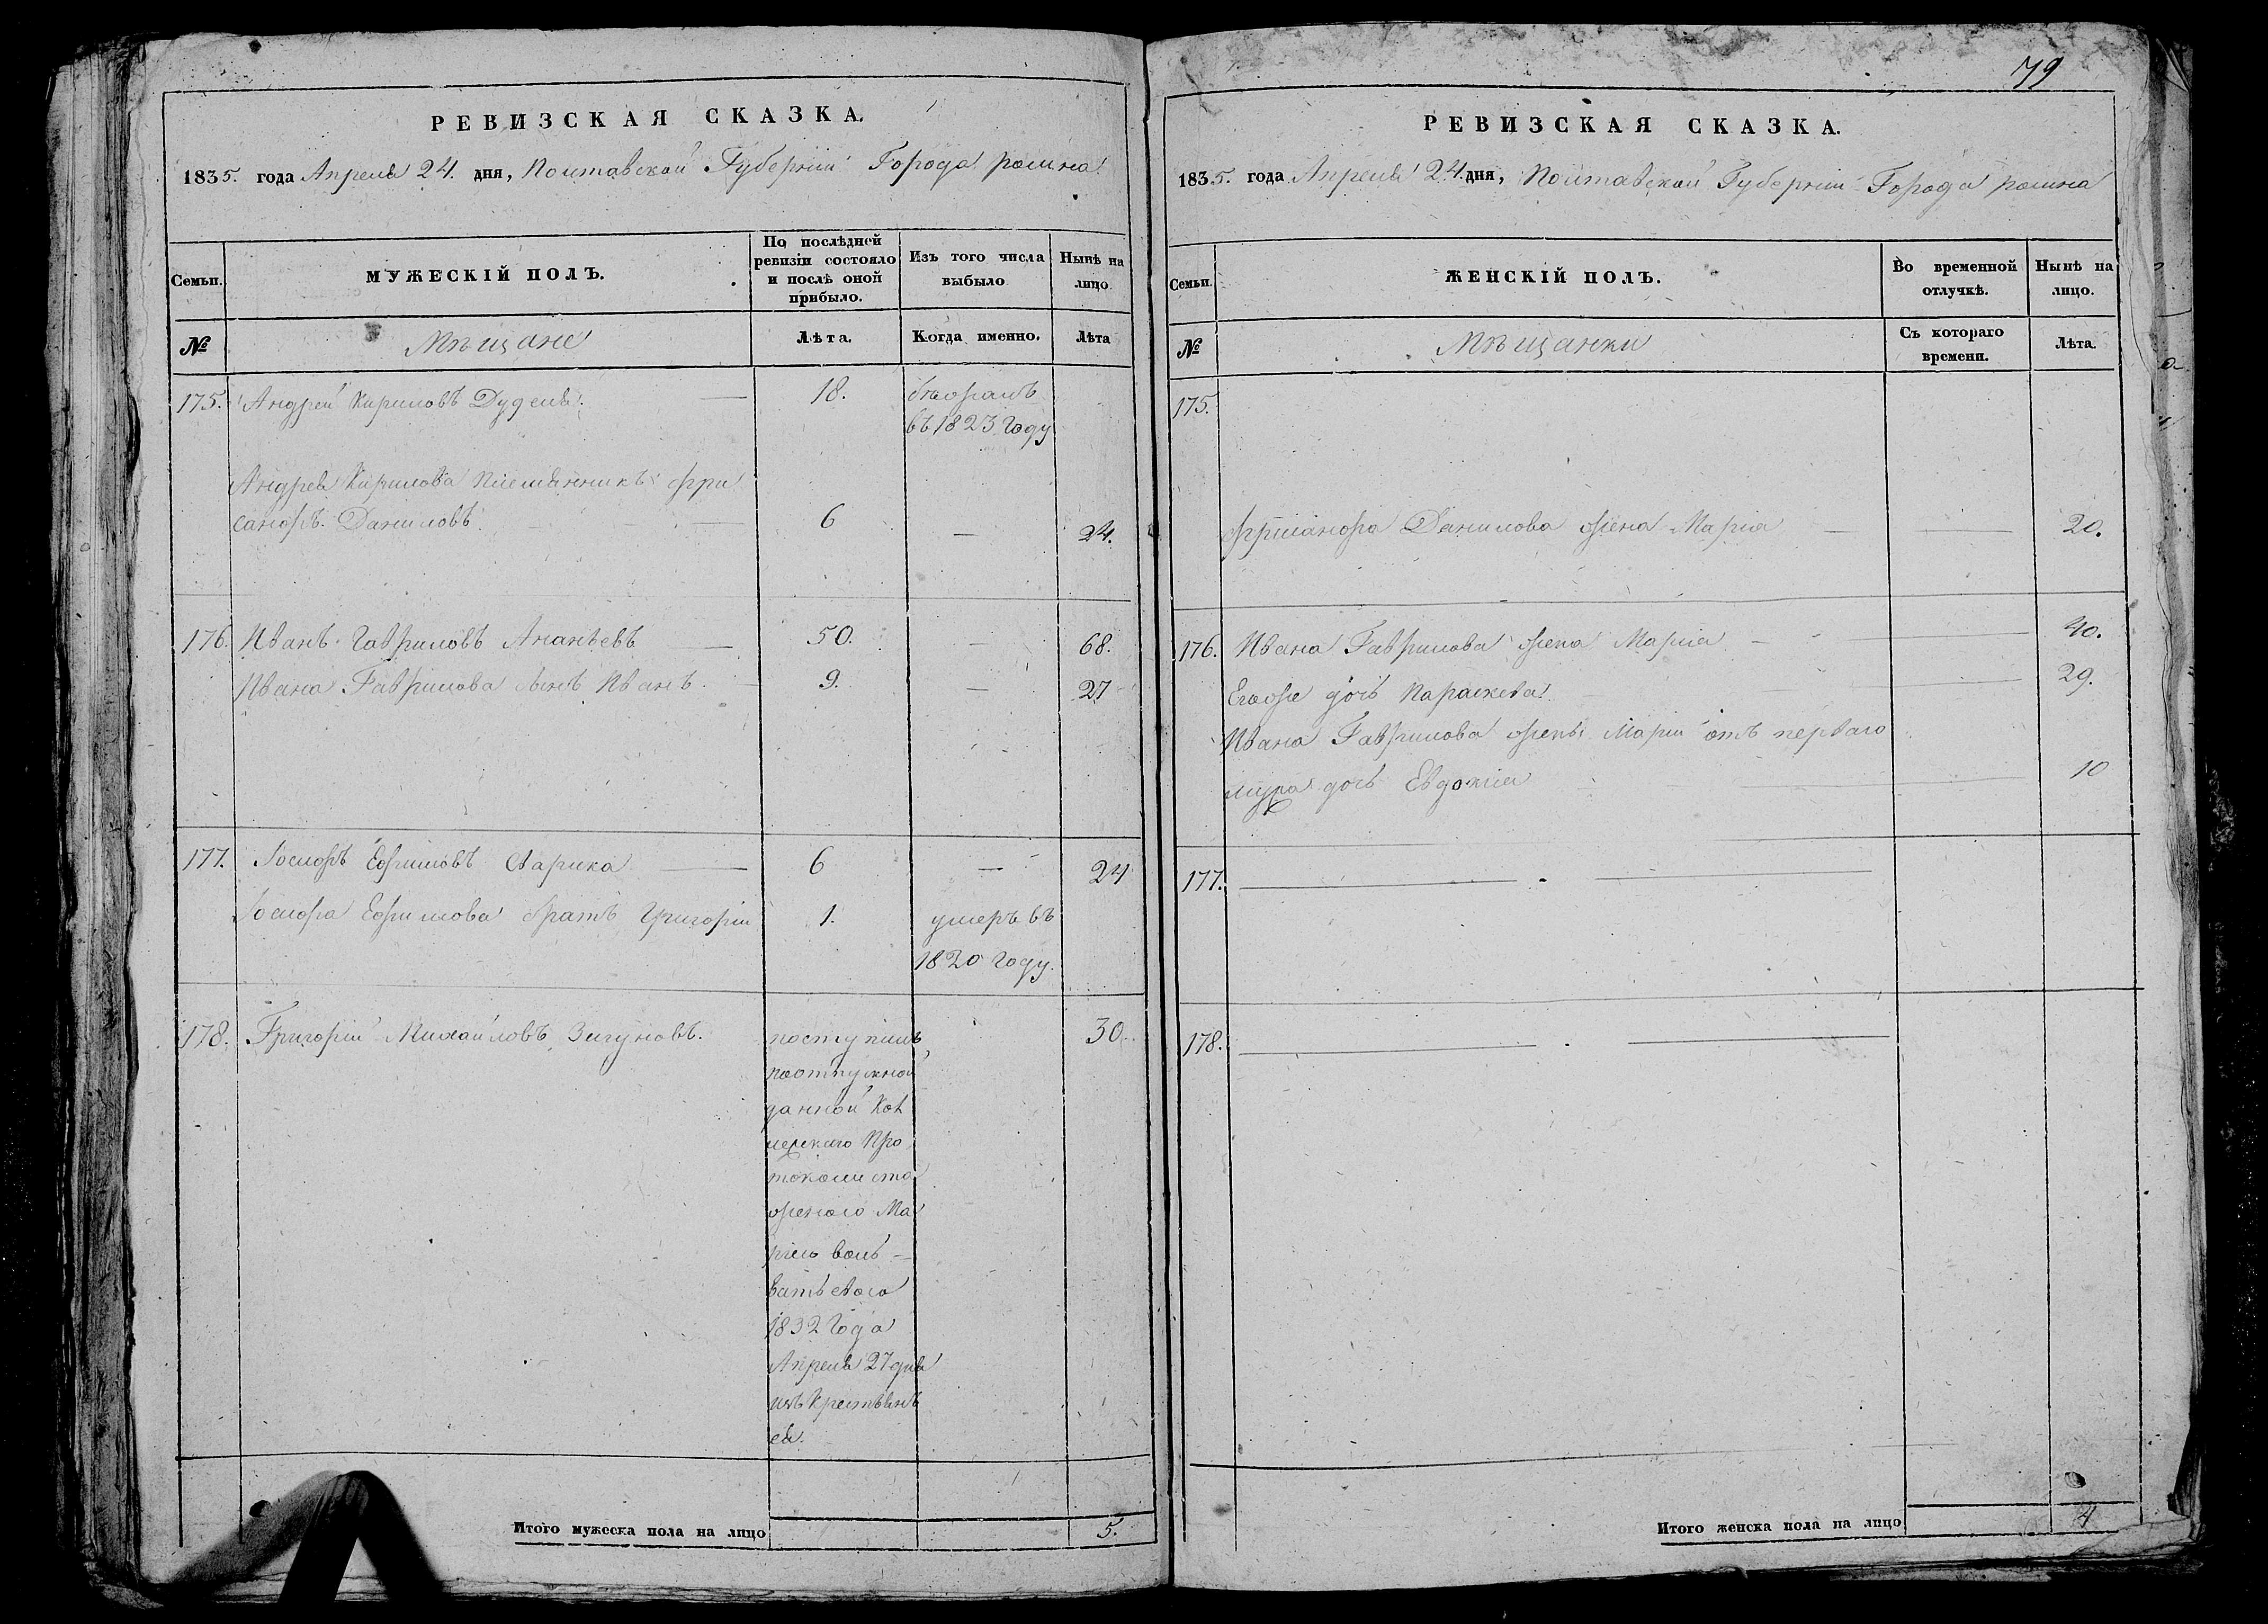 РЕВИЗСКАЯ СКАЗКА.
1835. года Апреля 24. дня, Полтавской Губерніи Города ромна
Семьи.
МУЖЕСКІЙ ПОЛЪ.
По послѣдней ревизіи состояло и послѣ оной прибыло.
Изъ того числа выбыло
Нынѣ на лицо
№
Мѣщане
Лѣта.
Когда именно.
Лѣта
175. Андрей Кириловъ Дудель 18. бѣжалъ
въ 1823 году
Андрея Кирилова племянникъ
Даниловъ 6 — 24.
176. Иванъ Гавриловъ Ананьевъ 50. — 68.
Ивана Гаврилова сынъ Иванъ 9. — 27
177. Ефимовъ 6 — 24
Ефимова братъ Григорій 1. умеръ въ
1820 году.
178. Григорій Михайловъ Зигуновъ. поступилъ 30.
по отпускной
данной Кол
лежскаго Про
токолиста
женою Ма
ріею
1832 года
Апреля 27 дня
изъ Крестьянъ
ея.
Итого мужеска пола на лицо 5.
79
РЕВИЗСКАЯ СКАЗКА.
1835. года Апреля 24. дня, Полтавской Губерніи Города ромна
Семьи.
ЖЕНСКІЙ ПОЛЪ.
Во временной отлучкѣ.
Нынѣ на лицо.
№
Мѣщанки
Съ котораго времени.
Лѣта.
175.
Данилова жена Марія — 20.
176. Ивана Гаврилова жена Марія — 40.
Егоже дочь Параскева 29.
Ивана Гаврилова жены Маріи отъ перваго
мужа дочь Евдокія 10
177.
178.
Итого женска пола на лицо 4